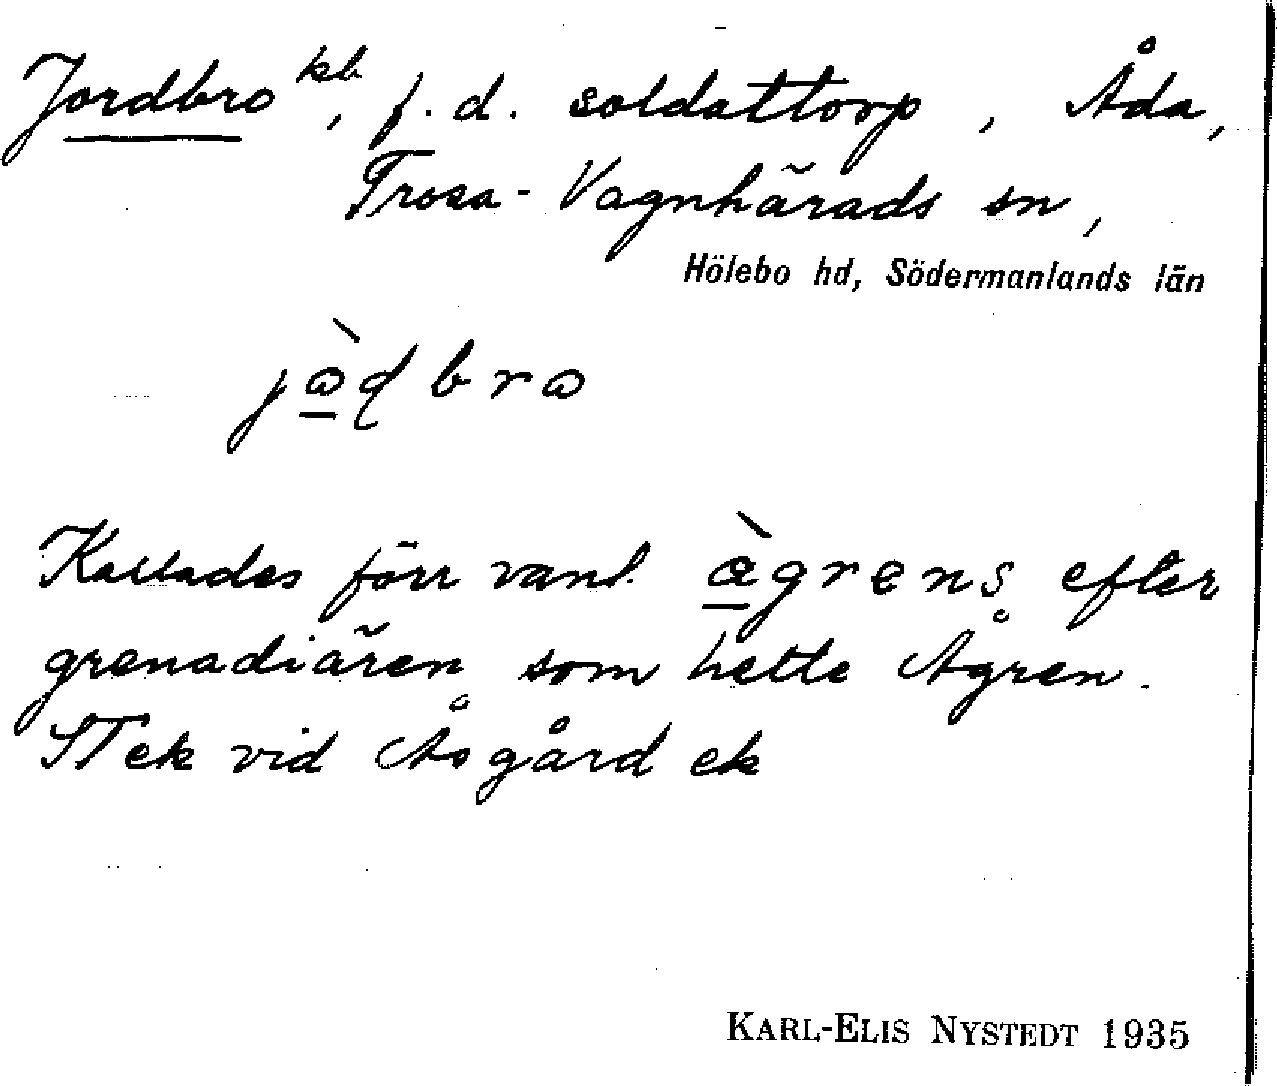 Jordbro kb, f. d. soldattorp, Åda,
Trosa-Vagnhärads sn,
Hölebo hd, Södermanlands län
jò̱ɖbrɷ
Kallades förr vanl. å̱̀grens efter
grenadiären som hette Ågren.
STek vid Åsgård ek
KARL-ELIS NYSTEDT 1935